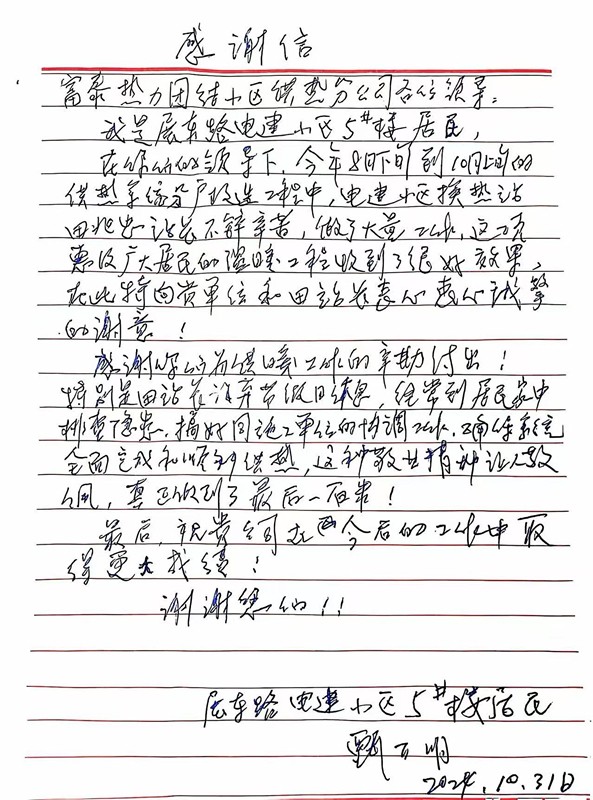 感谢信
富泰热力团结小区供热分公司各位领导:
我是展东路电建小区5#楼居民,
在你们的领导下,今年8月下旬到10月上旬的
供热系统分户改造工程中,电建小区换热站
田站长不辞辛苦,做了大量工作,这一项
惠及广大居民的温暖工程收到了很好效果,
在此特向贵单位和田站长表示衷心诚挚
的谢意!
感谢你们为供暖工作的辛勤付出!
特别是田站长放弃节假日休息,经常到居民家中
排查隐患,搞好同施工单位的协调工作,确保系统
全面完成和顺利供热,这种敬业精神让人敬
佩,真正做到了最后一百米!
最后,祝贵公司在今后的工作中取
得更大成绩!
谢谢您们!!
展东路电建小区5#楼居民
甄百明
2024.10.31日